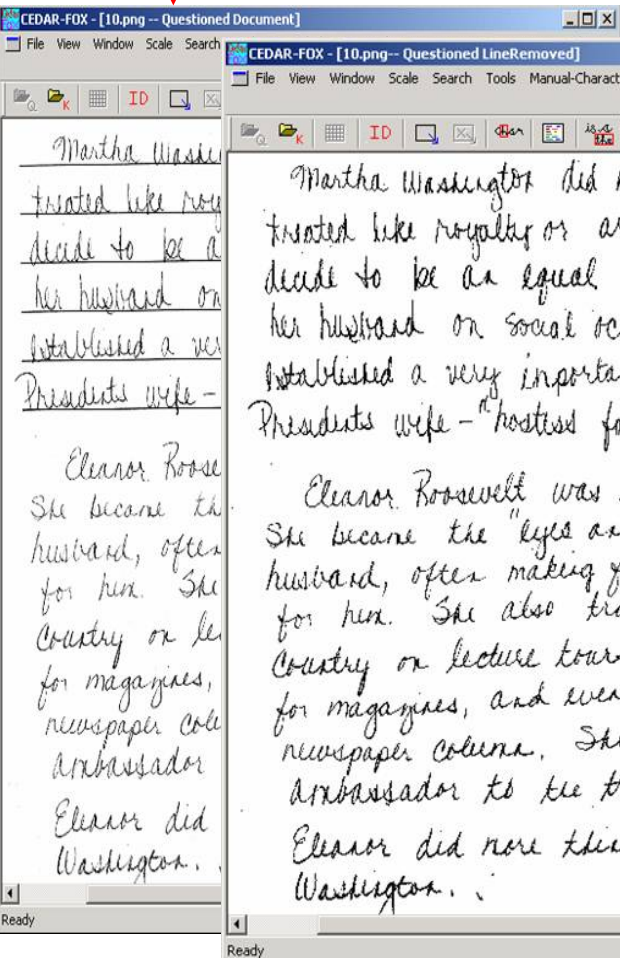 CEDAR-FOX - [10.png -- Questioned Document]
File View Window Scale Search
ID
Martha Washi
treated like roya
decide to be a
her husband on
established a ver
Presidents wife -
Eleanor Roose
She became th
husband, often
for him. She
Country on le
for magazines,
newspaper colu
ambassador
Eleanor did
Washington.
Ready
CEDAR-FOX - [10.png-- Questioned LineRemoved]
File View Window Scale Search Tools Manual-Charact
ID Char is a the
Martha Washington did n
treated like royalty or an
decide to be an equal
her husband on social oc
established a very importa
Presidents wife - "hostess fo
Eleanor Roosevelt was
She became the "eyes an
husband, often making f
for him. She also tra
Country on lecture tour
for magazines, and even
newspaper column. She
ambassador to the
Eleanor did more than
Washington.
Ready